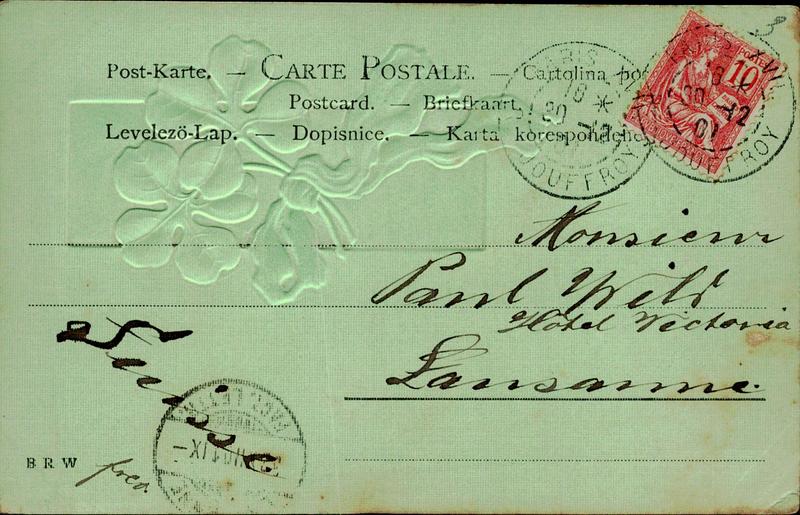 Post-Karte. — CARTE POSTALE. — Cartolina
Postcard. — Briefkaart.
Levelezö-Lap. — Dopisnice. — Karta korespondenc
PARIS
18
30 12
JOUFFROY
10
JOUFFROY
Monsieur
Paul Wild
Hôtel Victoria
Lausanne.
Suisse
B R W